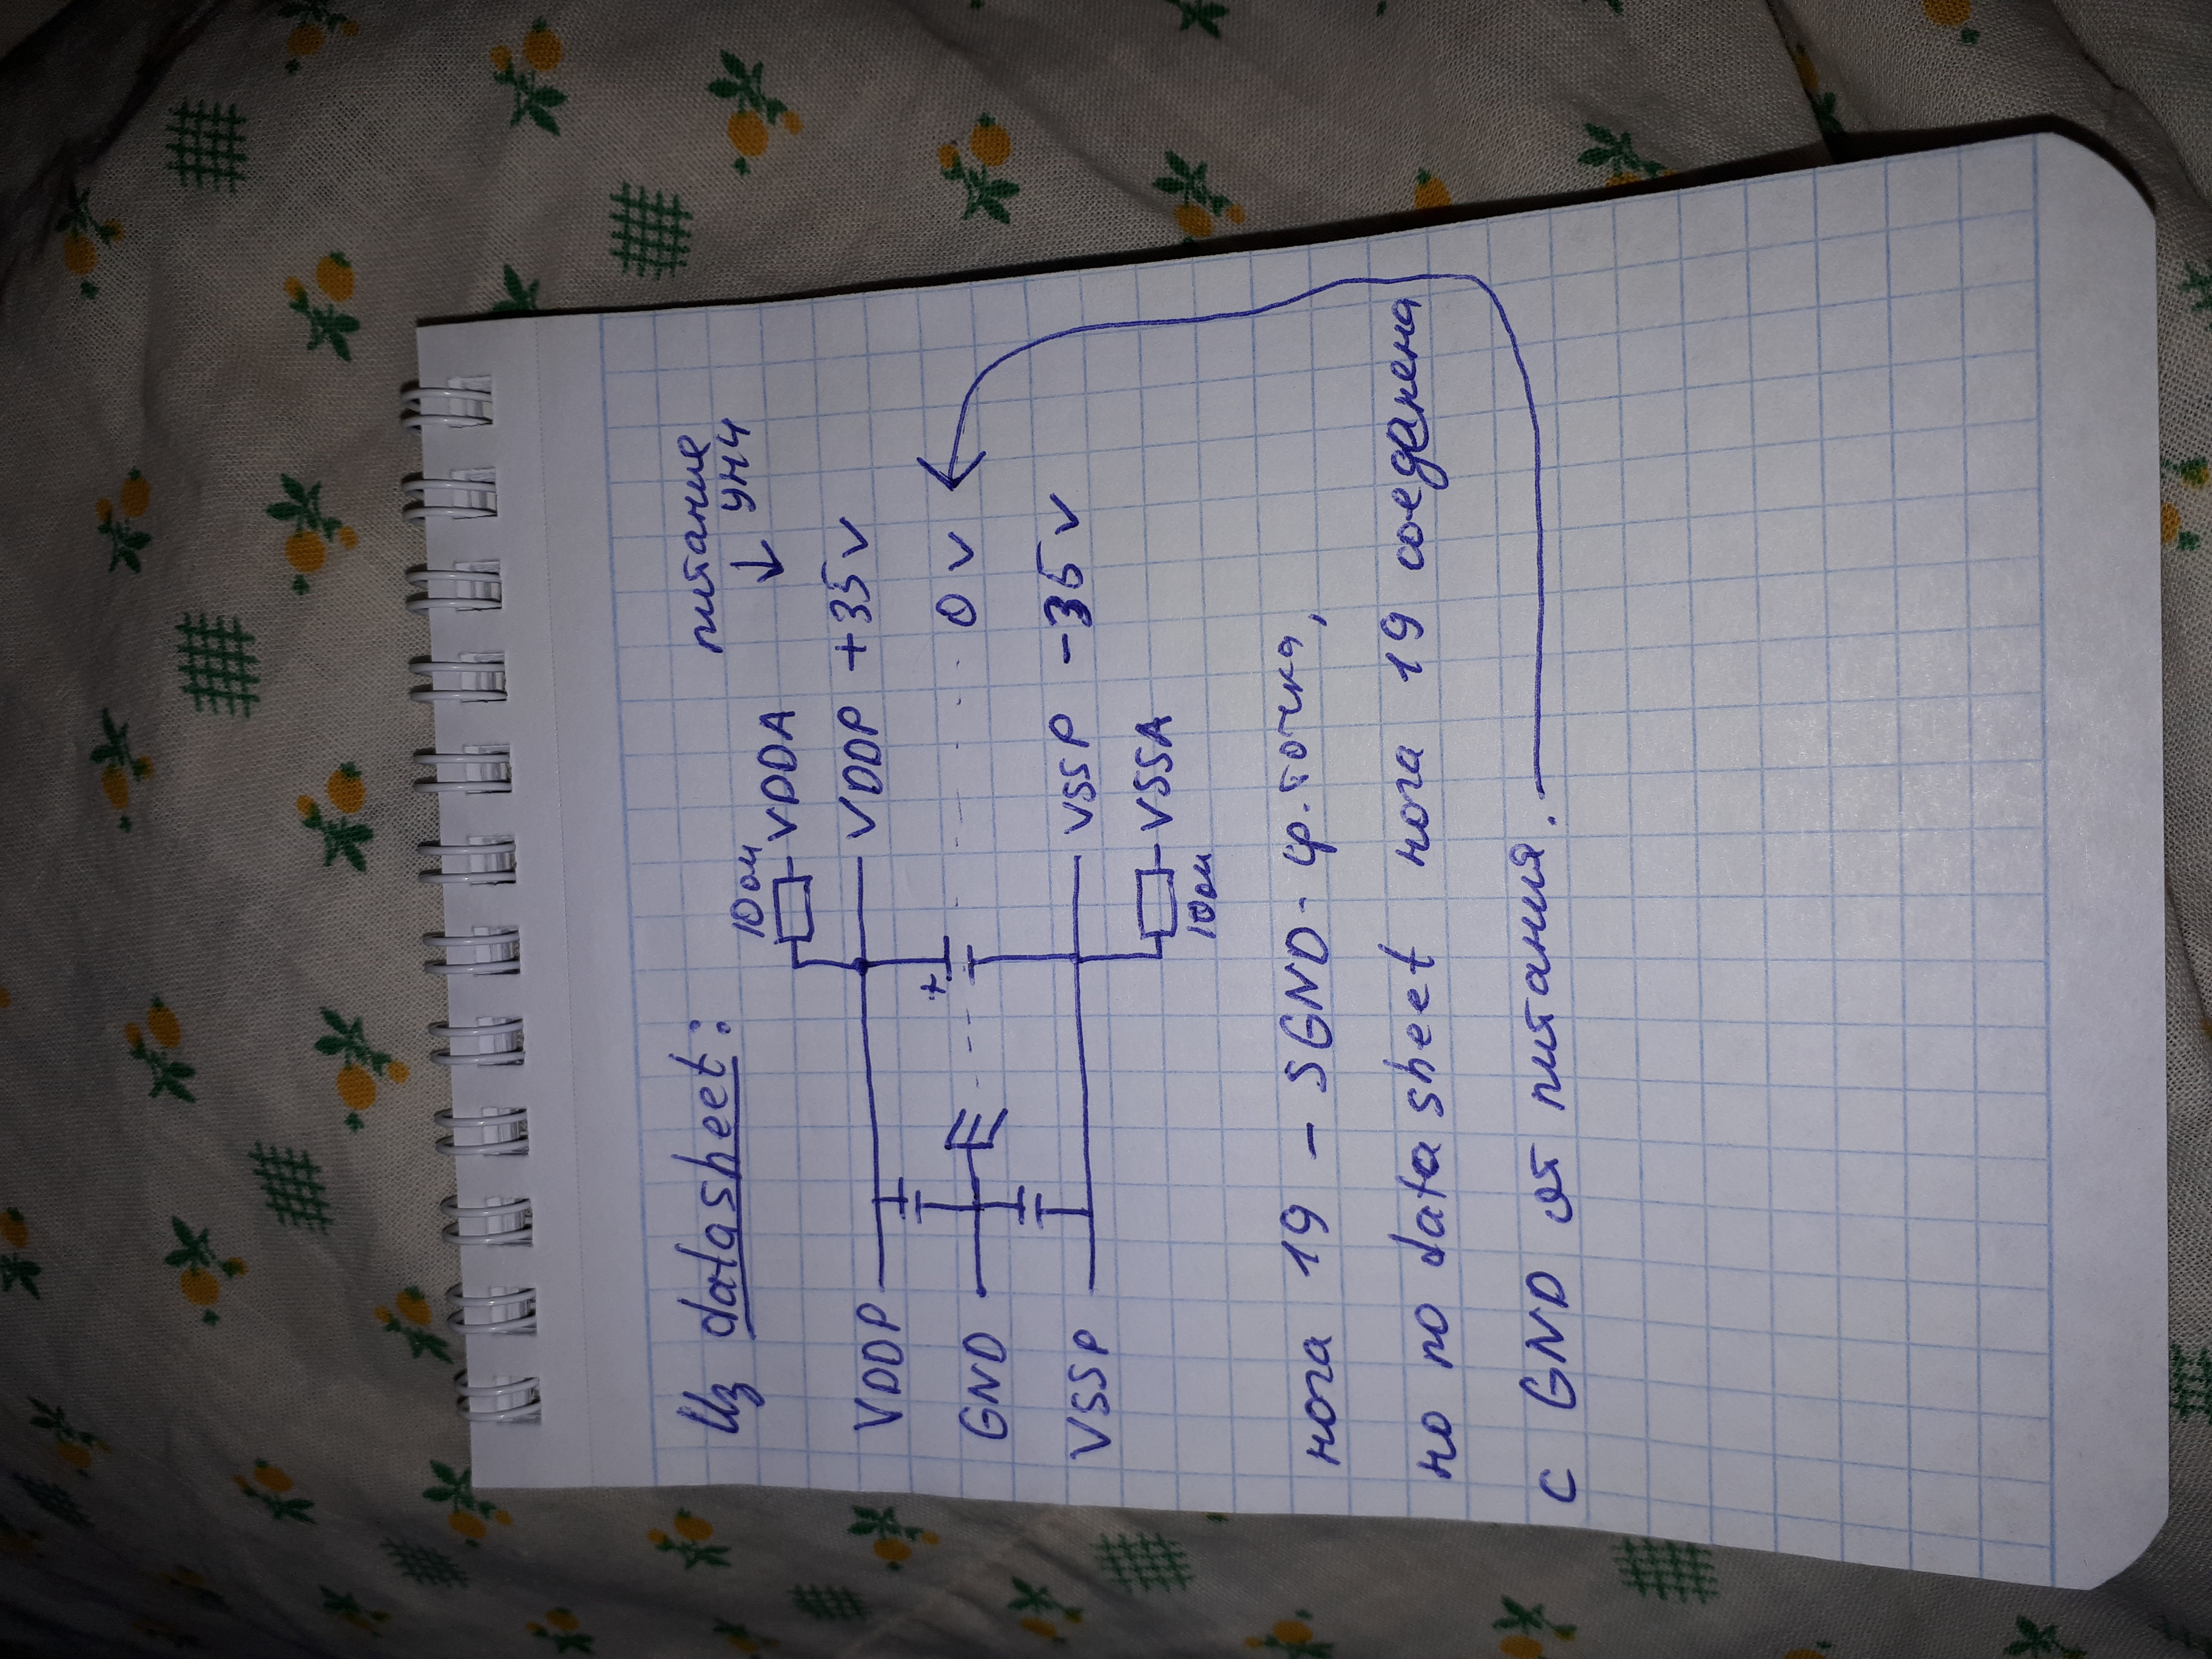 Из datasheet:
питание
УНЧ
10 ом
VDDA
VDDP
VDDP +35V
GND
0 V
+
VSSP
VSSP -35V
VSSA
10 ом
нога 19 - SGND - ср. точка,
но по datasheet нога 19 соеденена
с GND от питания.